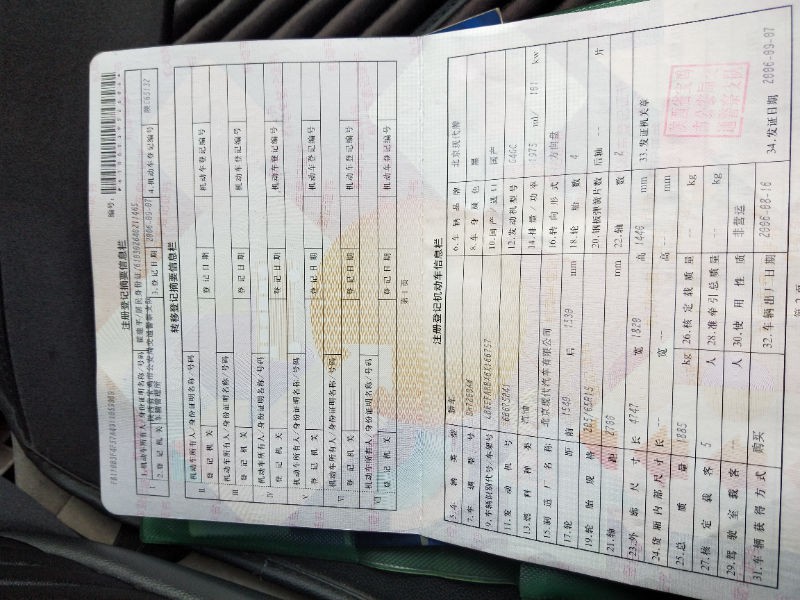 注册登记摘要信息栏
编号:
1.机动车所有人/身份证明名称/号码
2.登记机关
3.登记日期 2006-09-07
4.机动车登记编号
转移登记摘要信息栏
机动车所有人/身份证明名称/号码
II 登记机关 登记日期 机动车登记编号
机动车所有人/身份证明名称/号码
III 登记机关 登记日期 机动车登记编号
机动车所有人/身份证明名称/号码
IV 登记机关 登记日期 机动车登记编号
机动车所有人/身份证明名称/号码
V 登记机关 登记日期 机动车登记编号
机动车所有人/身份证明名称/号码
VI 登记机关 登记日期 机动车登记编号
机动车所有人/身份证明名称/号码
VII 登记机关 登记日期 机动车登记编号
第1页
注册登记机动车信息栏
5.车辆类型 轿车 6.车辆品牌 北京现代牌
7.车辆型号 8.车身颜色 黑
9.车辆识别代号/车架号 10.国产/进口 国产
11.发动机号 12.发动机型号 G4GC
13.燃料种类 汽油 14.排量/功率 1975 ml/ 101 kw
15.制造厂名称 北京现代汽车有限公司 16.转向形式 方向盘
17.轮距 前 1540 后 1530 mm 18.轮胎数 4
19.轮胎规格 205/65R15 20.钢板弹簧片数 后轴 -- 片
21.轴距 2700 mm 22.轴数 2
23.外廓尺寸 长 4747 宽 1820 高 1440 mm 33.发证机关章
24.货厢内部尺寸 长 -- 宽 -- 高 -- mm
25.总质量 1885 kg 26.核定载质量 -- kg
27.核定载客 5 人 28.准牵引总质量 -- kg
29.驾驶室载客 -- 人 30.使用性质 非营运
31.车辆获得方式 购买 32.车辆出厂日期 2006-08-16 34.发证日期 2006-09-07